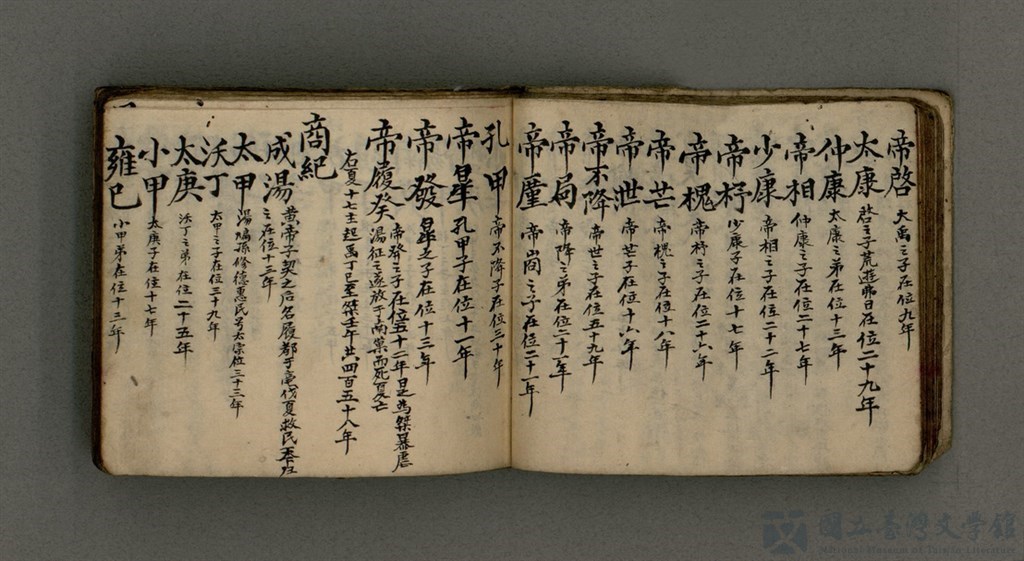 帝啓 大禹之子在位九年
太康 啓之子荒遊弗日在位二十九年
仲康 太康之弟在位十三年
帝相 仲康之子在位二十七年
少康 帝相之子在位二十二年
帝杼 少康子在位十七年
帝槐 帝杼之子在位二十六年
帝芒 帝槐之子在位十八年
帝世 帝芒子在位十六年
帝不降 帝世之子在位五十九年
帝局 帝降之弟在位二十一年
帝廑 帝局之子在位二十一年
孔甲 帝不降子在位三十年
帝皐 孔甲子在位十一年
帝發 皐之子在位十三年
帝履癸 帝發之子在位五十二年曰之為桀暴虐
湯征之遂放于南巢而死夏亡
右夏十七主起禹丁巳至桀壬午共四百五十八年
商紀
成湯 黄帝子契之后名履都于亳伐夏救民
之在位十三年
太甲 湯嫡孫修德惠民号太宗位三十三年
沃丁 太甲之子在位二十九年
太庚 沃丁之弟在位二十五年
小甲 太庚子在位十七年
雍巳 小甲弟在位十三年
國立臺灣文學館
National Museum of Taiwan Literature